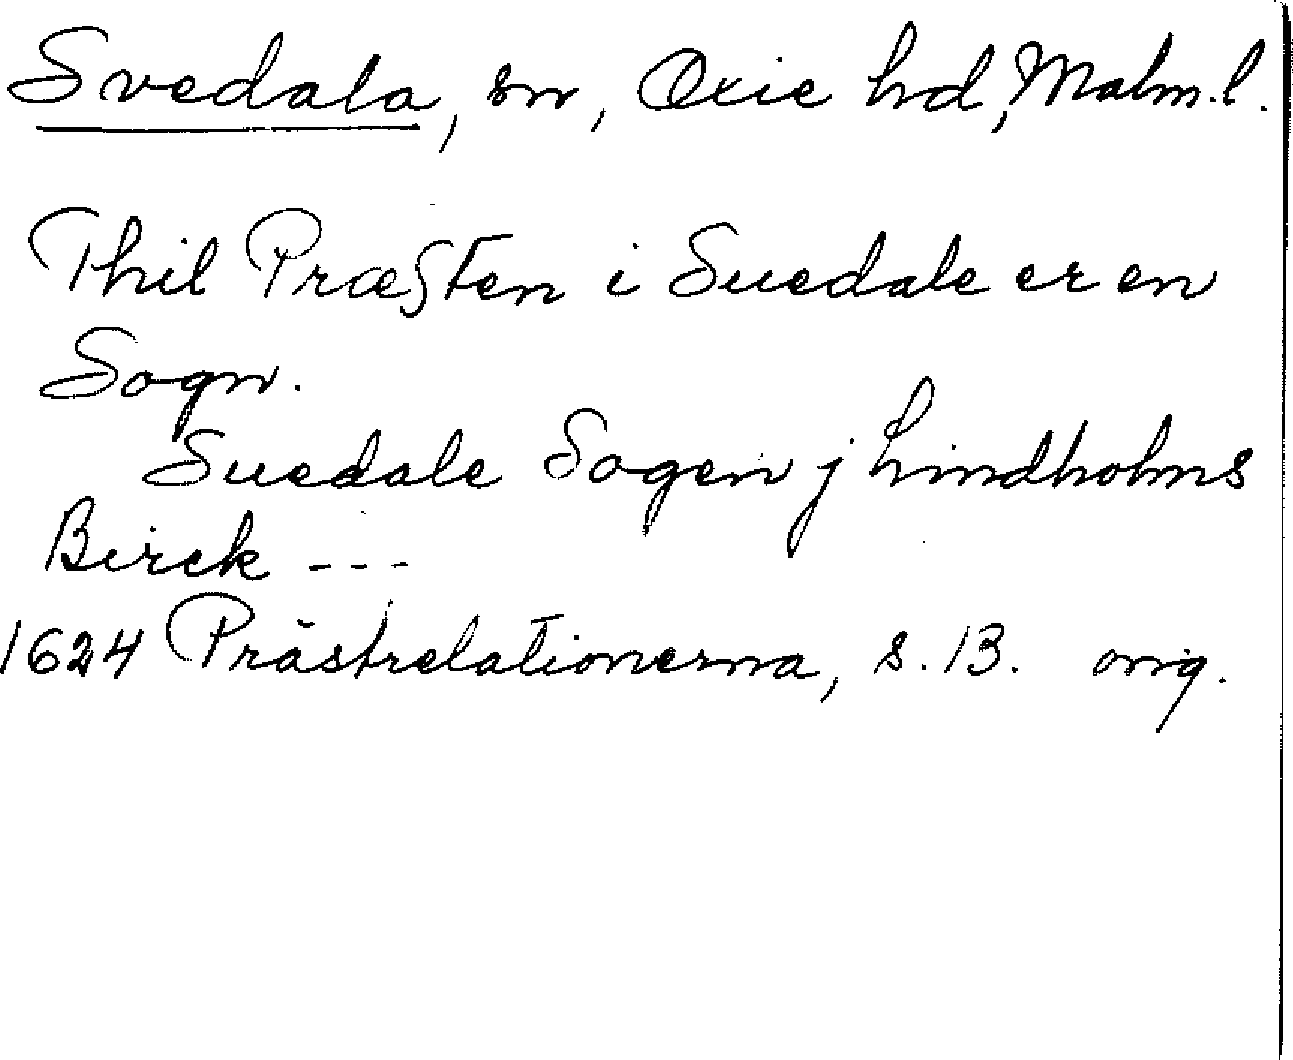 Svedala, sn, Oxie hd, Malm. l.
Thil Præsten i Suedale er en
Sogn.
Suedale Sogen j Lindholms
Birck ---
1624 Prästrelationerna, s. 13. orig.